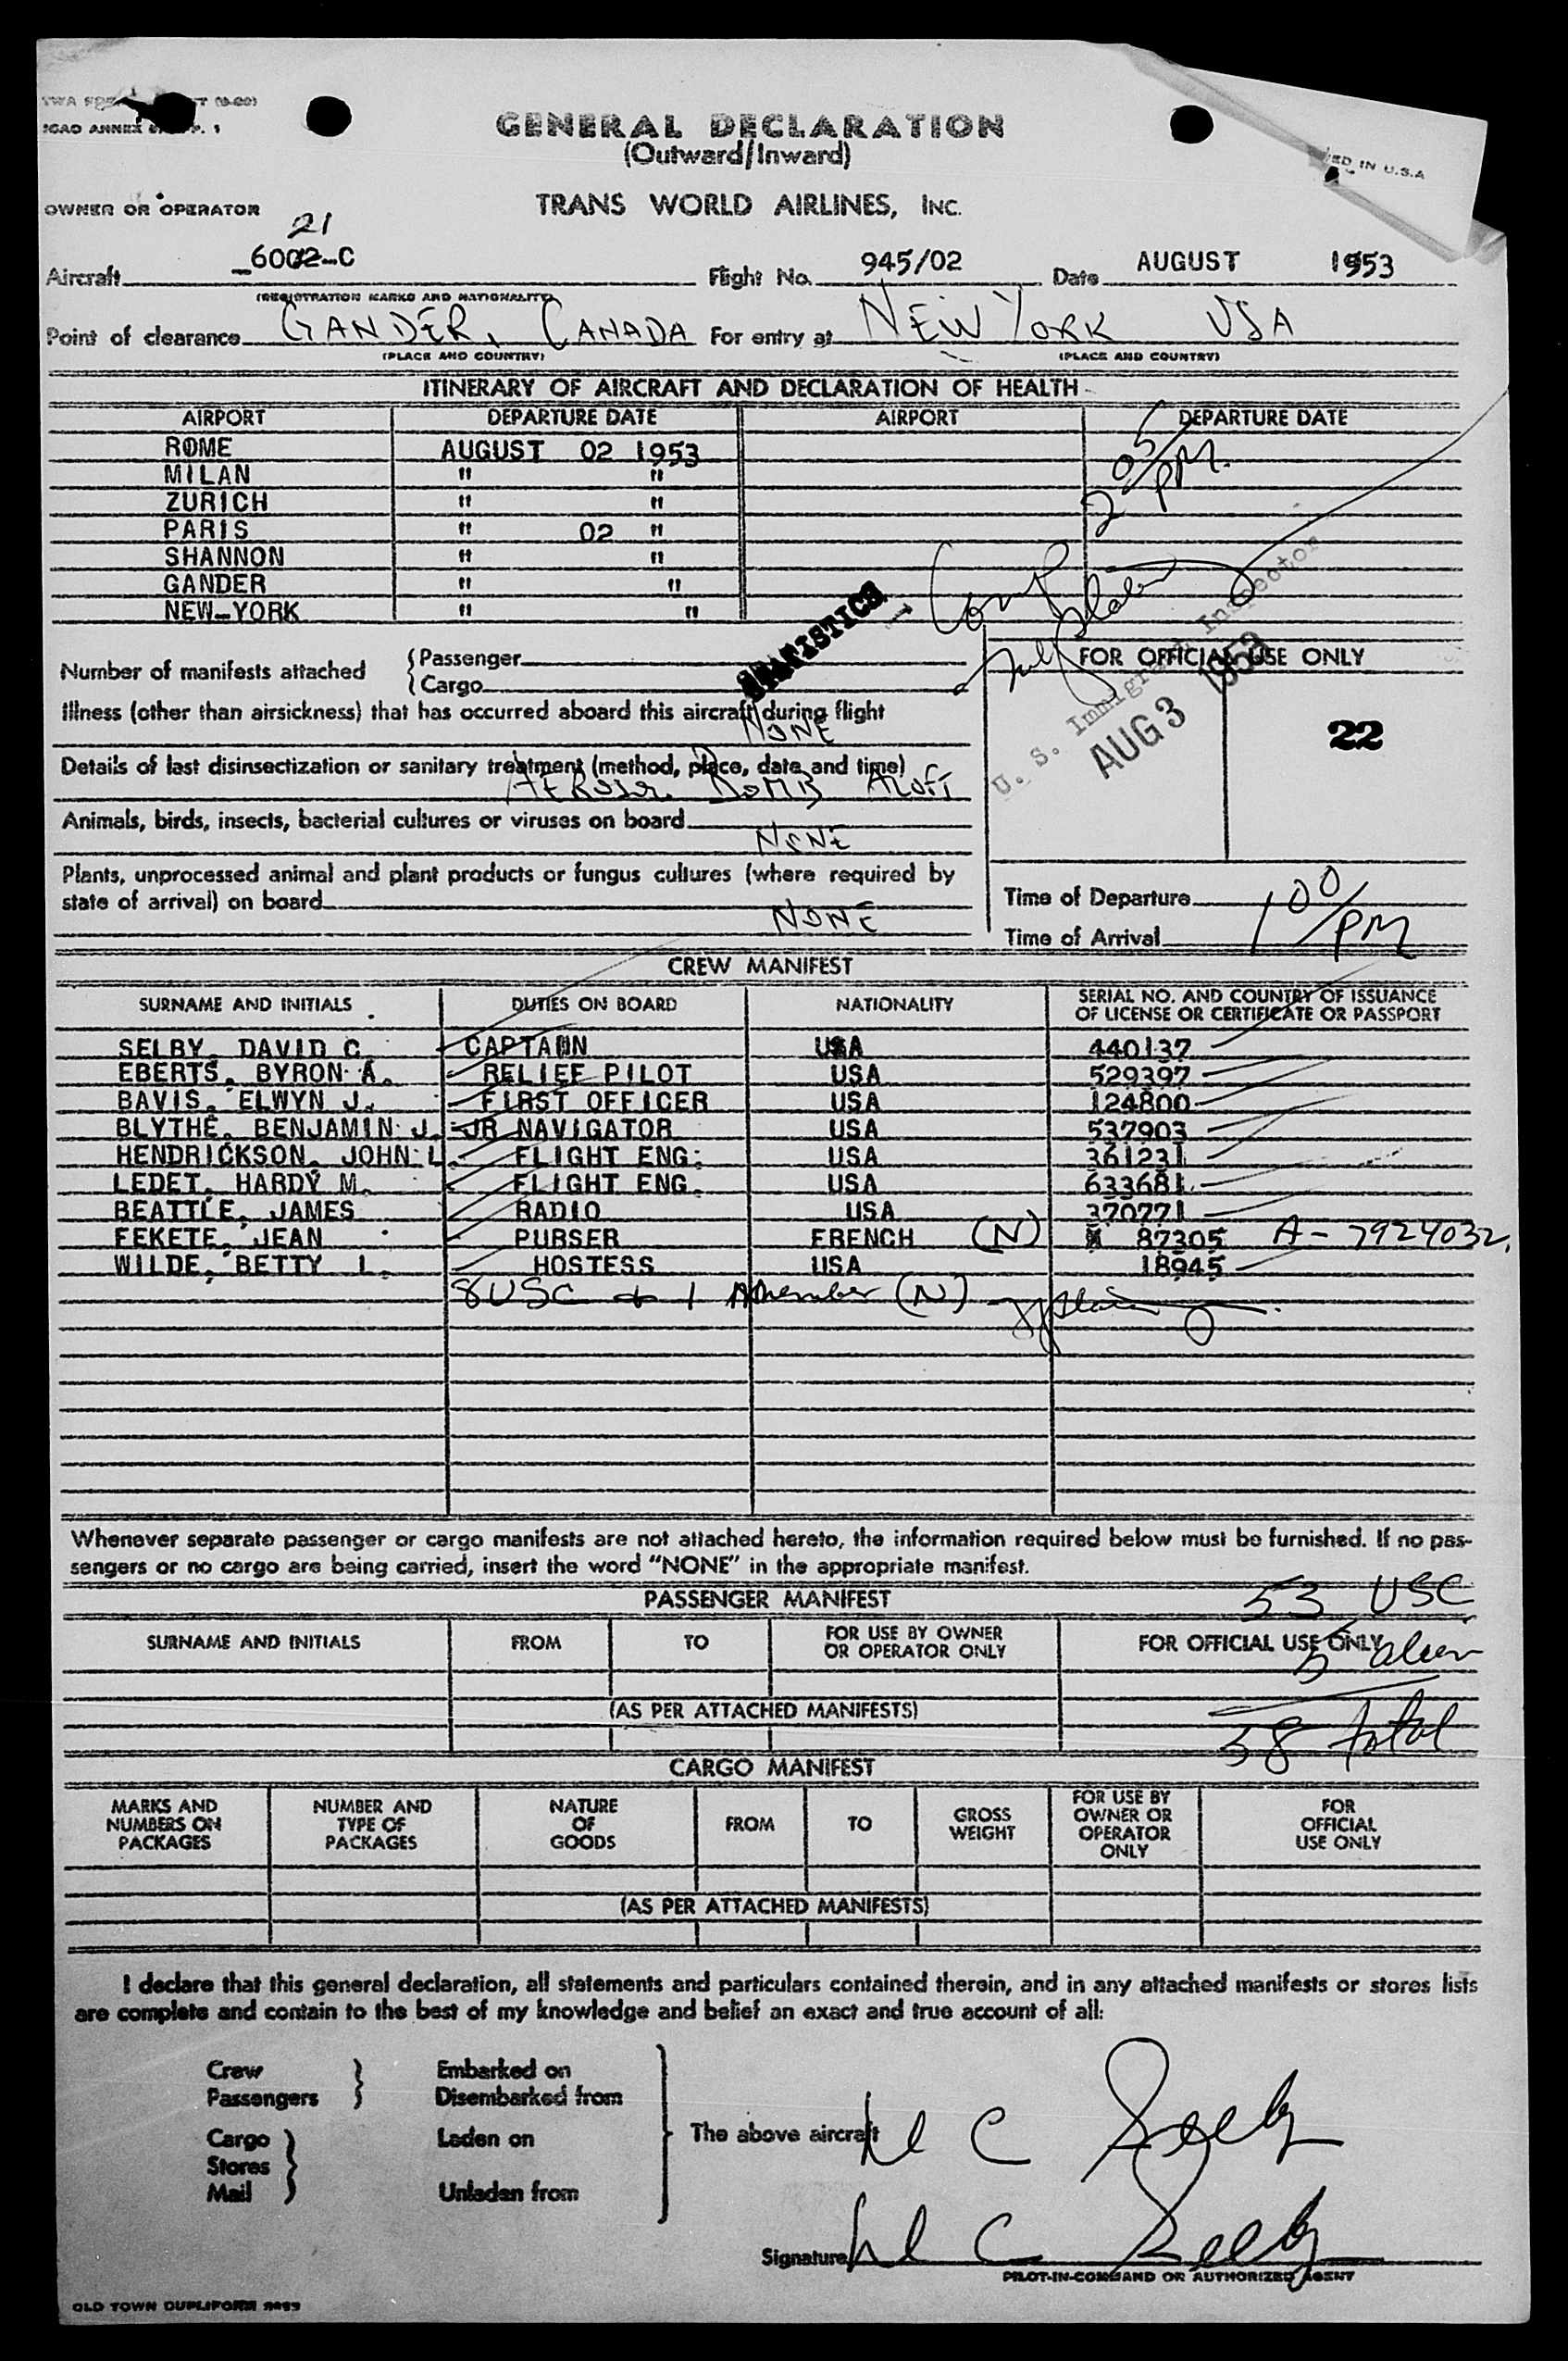 GENERAL DECLARATION
(Outward/Inward)
ED IN U.S.A
OWNER OR OPERATOR TRANS WORLD AIRLINES, INC.
21
Aircraft 6002-C Flight No. 945/02 Date AUGUST 1953
(REGISTRATION MARKS AND NATIONALITY)
Point of clearance GANDER, CANADA For entry at NEW YORK USA
(PLACE AND COUNTRY) (PLACE AND COUNTRY)
ITINERARY OF AIRCRAFT AND DECLARATION OF HEALTH
AIRPORT DEPARTURE DATE AIRPORT DEPARTURE DATE
ROME AUGUST 02 1953
MILAN " "
ZURICH " "
PARIS " 02 "
SHANNON " "
GANDER " "
NEW-YORK " "
2 05/PM.
STATISTICS
Number of manifests attached {Passenger
{Cargo
FOR OFFICIAL USE ONLY
U. S. Immigrant Inspector
AUG 3 1953
22
Illness (other than airsickness) that has occurred aboard this aircraft during flight
NONE
Details of last disinsectization or sanitary treatment (method, place, date and time)
AEROSOL BOMB ALOFT
Animals, birds, insects, bacterial cultures or viruses on board
NONE
Plants, unprocessed animal and plant products or fungus cultures (where required by
state of arrival) on board
NONE
Time of Departure
Time of Arrival 1 00/PM
CREW MANIFEST
SURNAME AND INITIALS DUTIES ON BOARD NATIONALITY SERIAL NO. AND COUNTRY OF ISSUANCE OF LICENSE OR CERTIFICATE OR PASSPORT
SELBY, DAVID C. CAPTAIN USA 440137
EBERTS, BYRON A. RELIEF PILOT USA 529397
BAVIS, ELWYN J. FIRST OFFICER USA 124800
BLYTHE, BENJAMIN J. JR NAVIGATOR USA 537903
HENDRICKSON, JOHN L. FLIGHT ENG. USA 361231
LEDET, HARDY M. FLIGHT ENG. USA 633681
BEATTLE, JAMES RADIO USA 370771
FEKETE, JEAN PURSER FRENCH (N) 87305 A-7924032.
WILDE, BETTY L. HOSTESS USA 18945
8 USC + 1 member (N)
Whenever separate passenger or cargo manifests are not attached hereto, the information required below must be furnished. If no pas-
sengers or no cargo are being carried, insert the word "NONE" in the appropriate manifest.
PASSENGER MANIFEST 53 USC
SURNAME AND INITIALS FROM TO FOR USE BY OWNER OR OPERATOR ONLY FOR OFFICIAL USE ONLY
5 alien
(AS PER ATTACHED MANIFESTS)
58 total
CARGO MANIFEST
MARKS AND NUMBERS ON PACKAGES NUMBER AND TYPE OF PACKAGES NATURE OF GOODS FROM TO GROSS WEIGHT FOR USE BY OWNER OR OPERATOR ONLY FOR OFFICIAL USE ONLY
(AS PER ATTACHED MANIFESTS)
I declare that this general declaration, all statements and particulars contained therein, and in any attached manifests or stores lists
are complete and contain to the best of my knowledge and belief an exact and true account of all:
Crew } Embarked on
Passengers } Disembarked from
Cargo } Laden on
Stores }
Mail } Unladen from
The above aircraft D C Selby
Signature D C Selby
PILOT-IN-COMMAND OR AUTHORIZED AGENT
OLD TOWN DUPLIFORM